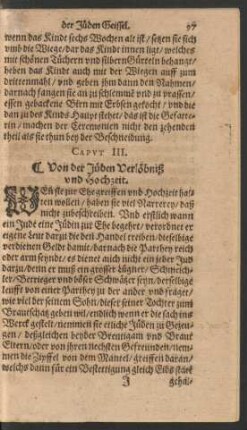 der Jüden Geissel. 97
wenn das Kinde sechs Wochen alt ist / setzen sie sich
vmb die Wiege / dar das Kinde innen ligt / welches
mit schönen Tüchern vnd silbern Gürteln behangt /
heben das Kinde auch mit der Wiegen auff zum
drittenmahl / vnd geben jhm dann den Nahmen /
darnach fangen sie an zu schlemmē vnd zu prassen /
essen gebackene Birn mit Erbsen gekocht / vnd die
dan zu des Kinds Haupt stehet / das ist die Gefatte-
rin / machen der Ceremonien nicht den zehenden
theil als sie thun bey der Beschneidung.
CAPVT III.
Von der Jüden Verlöbniß
vnd Hochzeit.
WEñ sie zur Ehe greiffen vnd Hochzeit hal-
ten wollen / haben sie viel Narrerey / daß
nicht zubeschreiben. Vnd erstlich wann
ein Jude eine Jüden zur Ehe begehret / verordnet er
eigene Leute darzu die den Handel treiben / dieselbige
verdienen Geldt damit / darnach die Parthey reich
oder arm seyndt / es dienet auch nicht ein jeder dar-
zu / denn er muß ein grosser Lügner / Schmeich-
ler / Betrieger vnd böser Schwätzer seyn / derselbige
leufft von einer Parthey zu der ander vnd fraget /
wie viel der seinem Sohn / dieser seiner Tochter zum
Brautschatz geben wil / endlich wenn er die sach ins
Werck gestelt / nemmen sie etliche Jüden zu Zeu-
gen / deßgleichen beyder Breutigam vnd Braut
Eltern oder von jhren nechsten Gefreunden / nem-
men die Zipffel von dem Mantel / greiffen daran /
welchs dann für ein Bestettigung gleich Eids statt
J gehal-